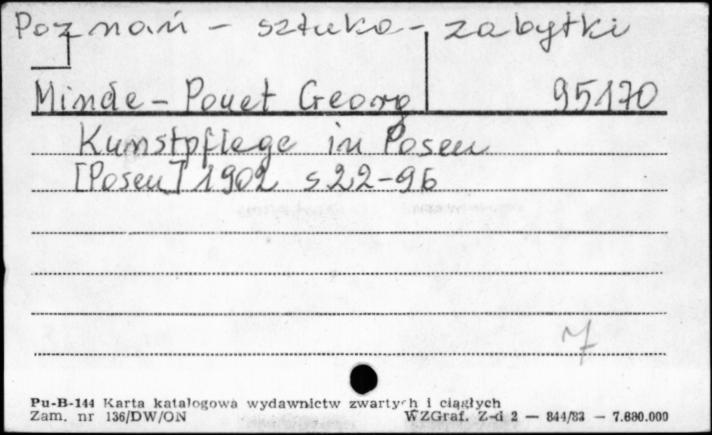 Poznań - sztuka - zabytki
Minde - Pouet Georg 95170
Kunstpflege in Posen
[Posen] 1902 s 22-96
7
Pu-B-144 Karta katalogowa wydawnictw zwartych i ciągłych
Zam. nr 136/DW/ON WZGraf. Z-d 2 — 844/83 — 7.680.000